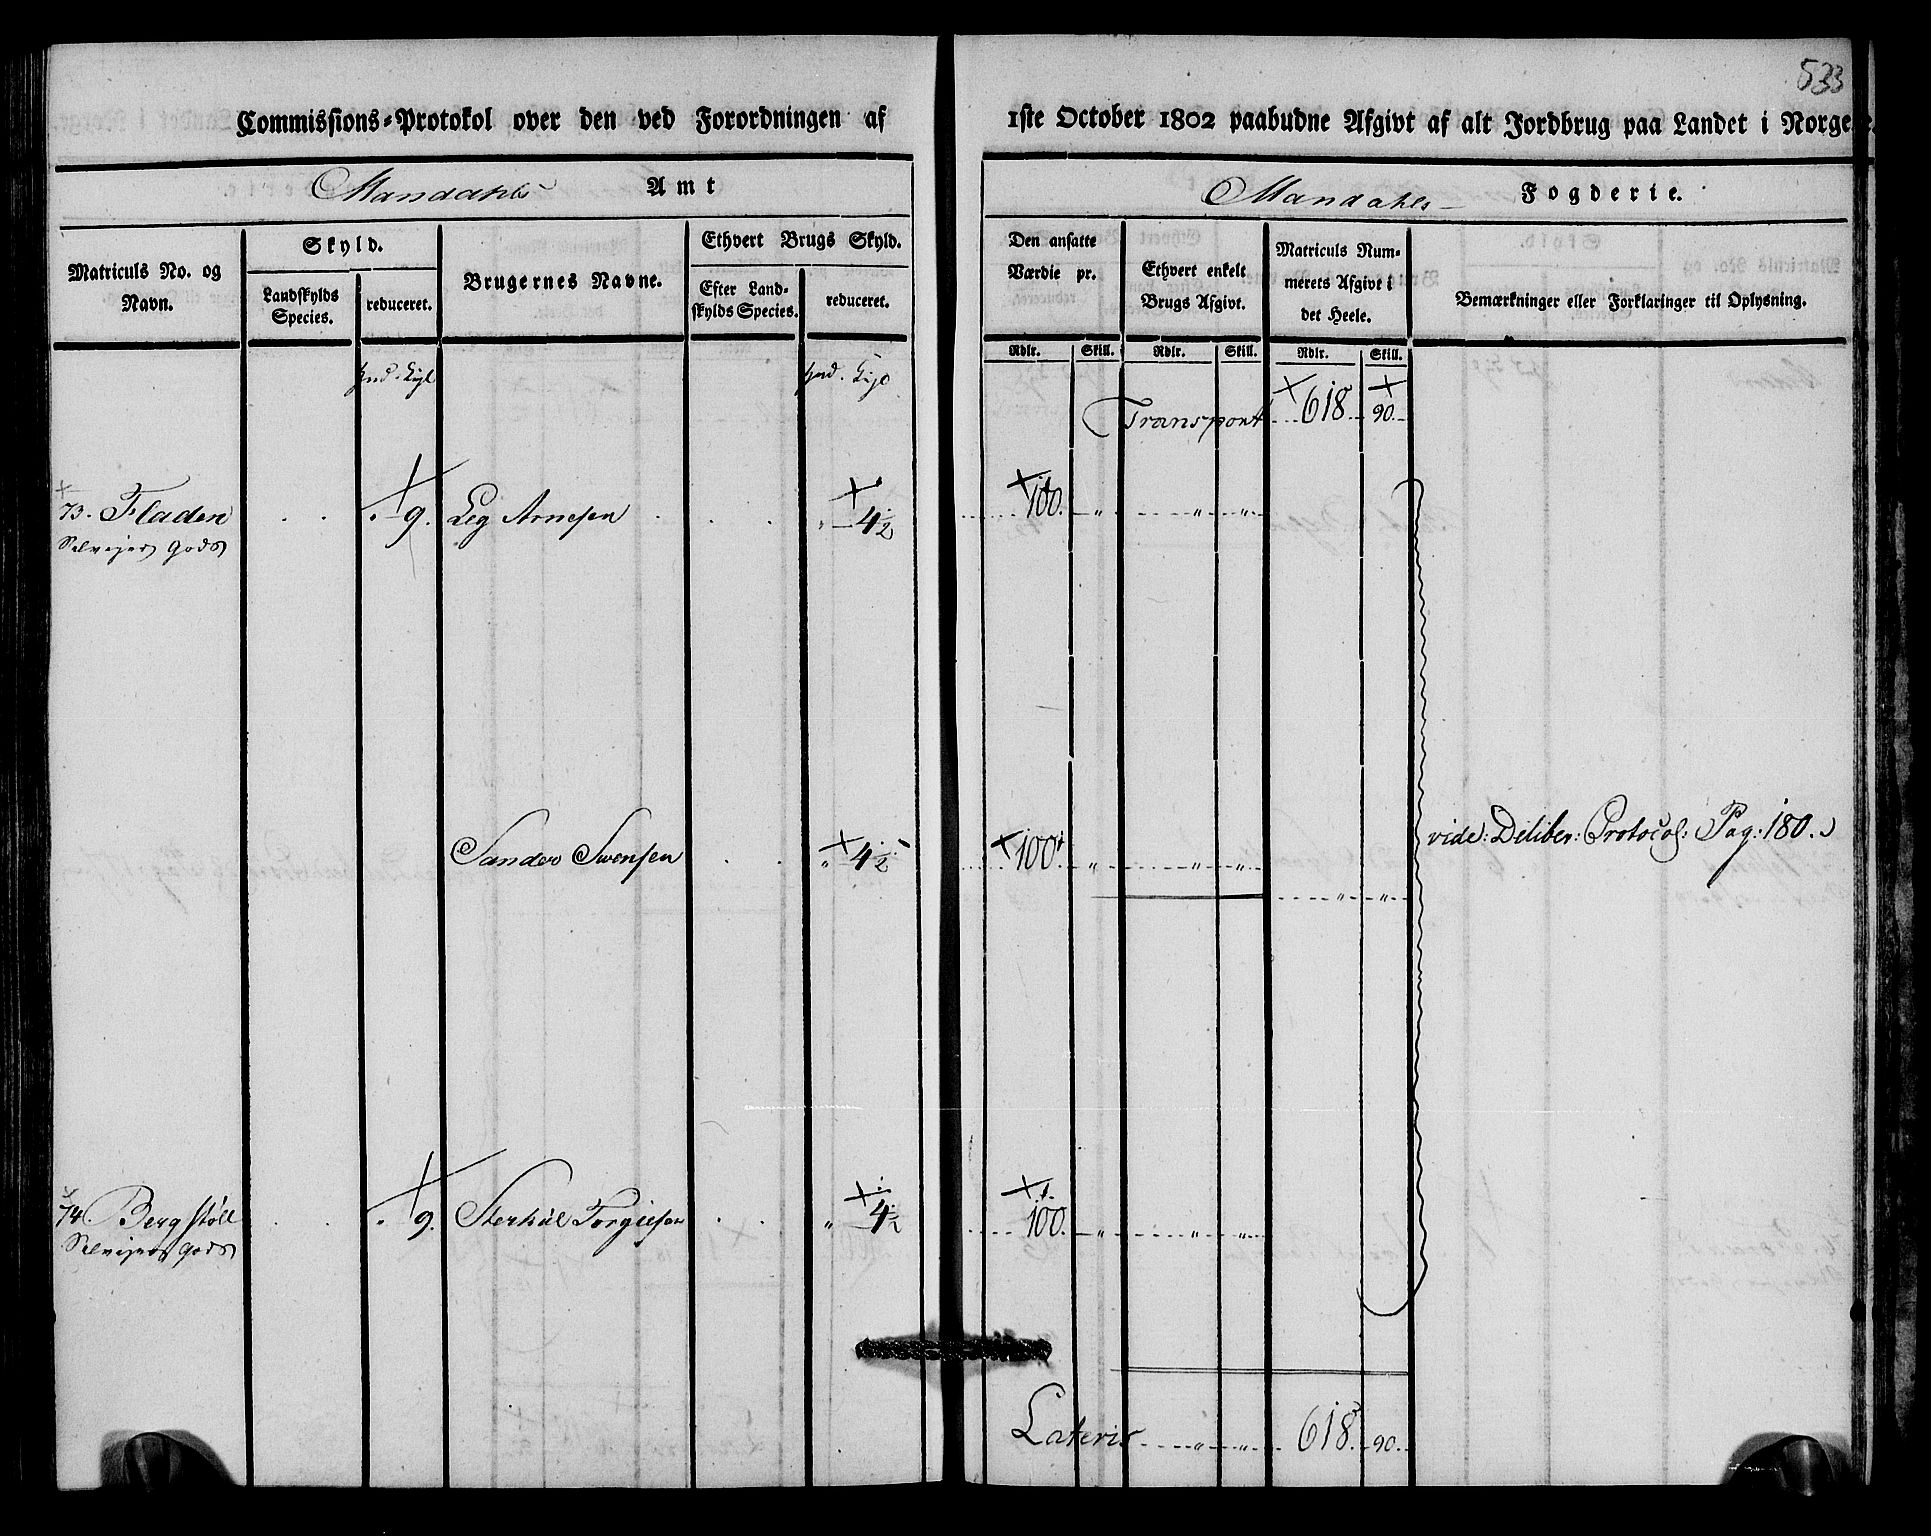 533
Commissions-Protokol over den ved Forordningen af 1ste October 1802 paabudne Afgivt af alt Jordbrug paa Landet i Norge
Mandahls Amt
Mandahls Fogderie.
Matriculs No. og Navn.
Skyld.
Landskylds Species.
reduceret.
Brugernes Navne.
Ethvert Brugs Skyld.
Efter Landskylds Species.
reduceret.
Den ansatte Værdie pr.
Ethvert enkelt Brugs Afgivt.
Matriculs Nummerets Afgivt i det Heele.
Bemærkninger eller Forklaringer til Oplysning.
Rdlr. Skill. Rdlr. Skill. Rdlr. Skill.
Transport 618. 90.
73. Fladen 9. Leg Arnesen " 4½ 100. " " "
Selvejer Gods
Sander Svensen " 4½ 100. " " "
" "
vide: Deliber: Protocol: Pag: 180.
74. Bergstøll 9. Torgiesen " 4½ 100. " " "
Selvejer Gods
Lateris " " 618. 90.